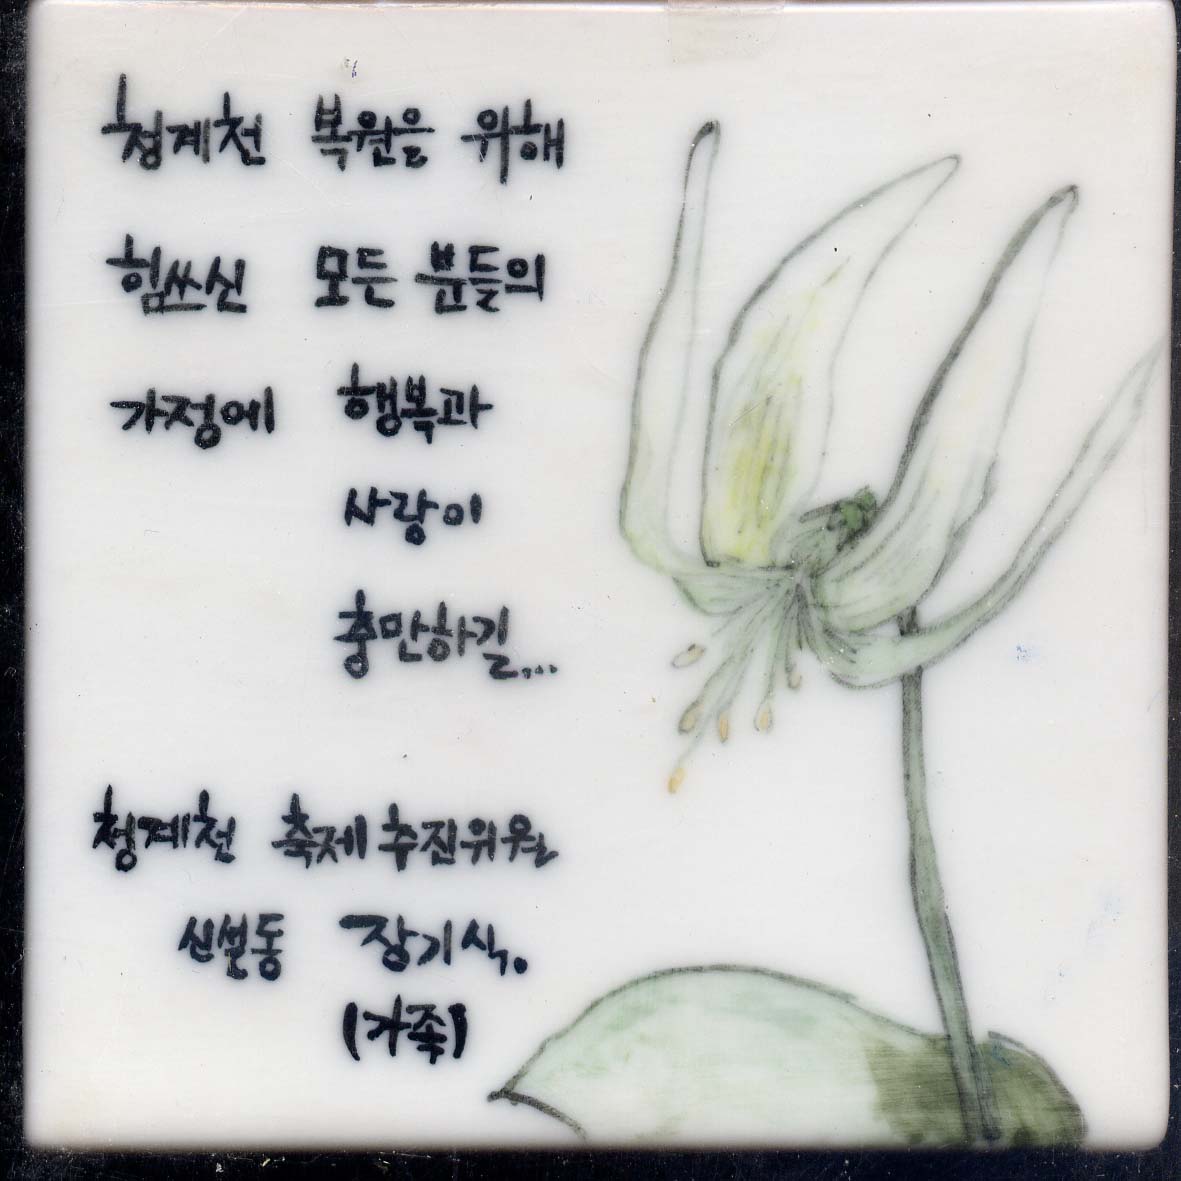 청계천 복원을 위해
힘쓰신 모든 분들의
가정에 행복과
사랑이
충만하길...
청계천 축제추진위원
신설동 장기식.
(가족)